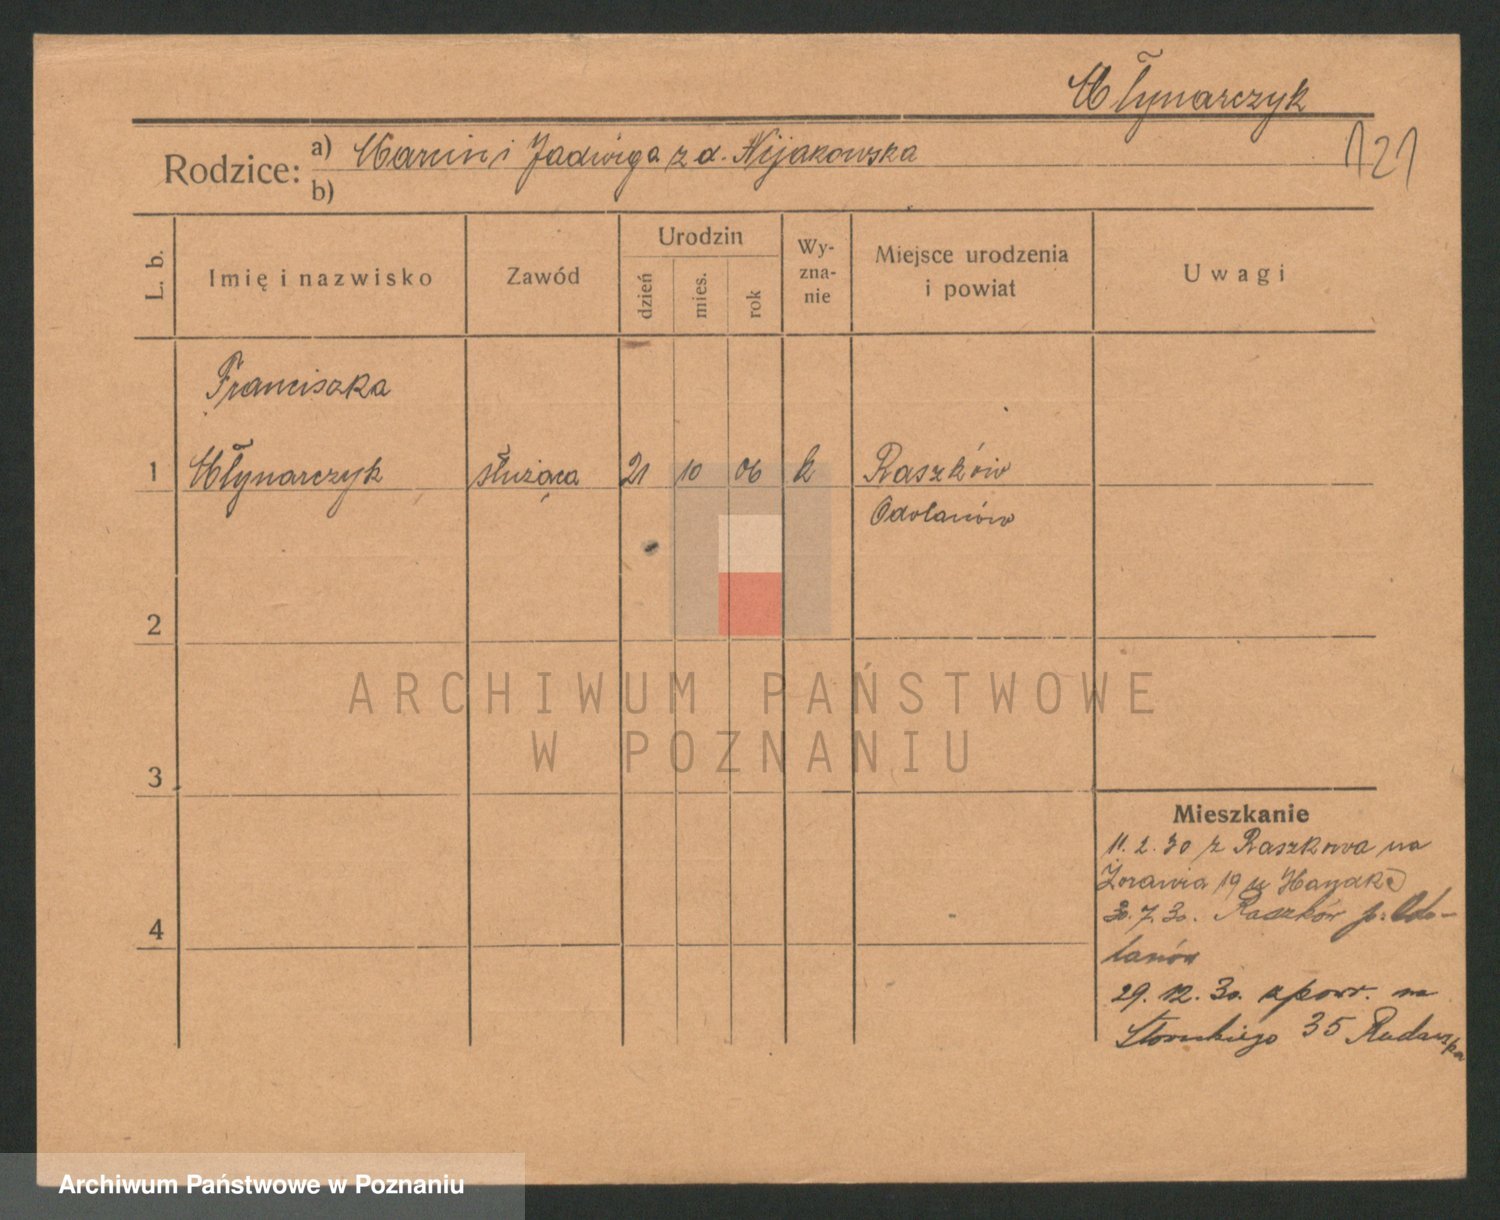 Młynarczyk
Rodzice: a) Marcin i Jadwiga z d. Nijakowska
b)
121
L. b.
Imię i nazwisko
Zawód
Urodzin
dzień
mies.
rok
Wy-
zna-
nie
Miejsce urodzenia
i powiat
Uwagi
Franciszka
1 Młynarczyk służąca 21 10 06 k Raszków
Odolanów
2
3
4
Mieszkanie
11. 2. 30 z Raszkowa na
Żórawia 19 u
30. 7. 30. Raszków p. Odo-
lanów
29. 12. 30. spowr. na
35
ARCHIWUM PAŃSTWOWE
W POZNANIU
Archiwum Państwowe w Poznaniu